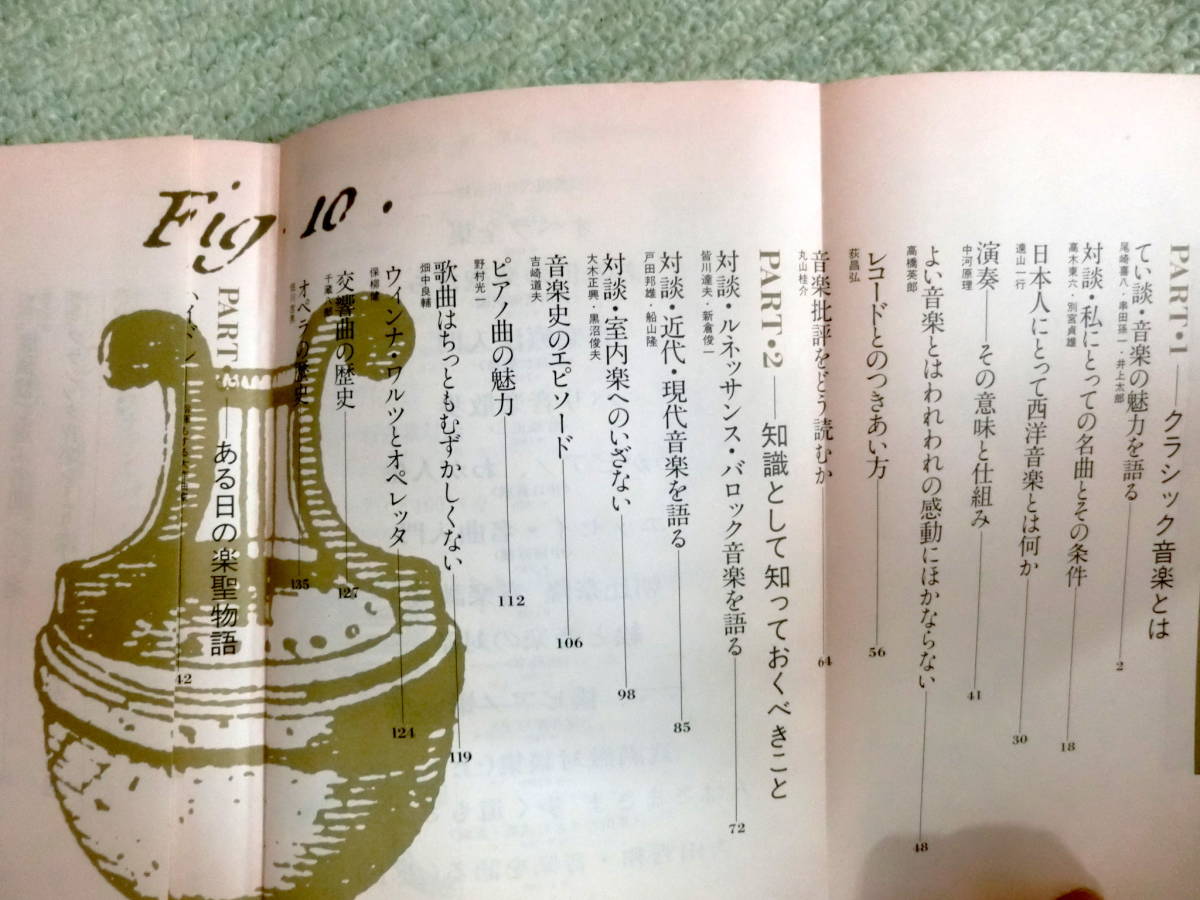 PART・1——クラシック音楽とは
てい談・音楽の魅力を語る——2
尾崎喜八・串田孫一・井上太郎
対談・私にとっての名曲とその条件——18
高木東六・別宮貞雄
日本人にとって西洋音楽とは何か——30
遠山一行
演奏——その意味と仕組み——41
中河原理
よい音楽とはわれわれの感動にほかならない——48
高橋英郎
レコードとのつきあい方——56
荻昌弘
音楽批評をどう読むか——64
丸山桂介
PART・2——知識として知っておくべきこと
対談・ルネッサンス・バロック音楽を語る——72
皆川達夫・新倉俊一
対談・近代・現代音楽を語る——85
戸田邦雄・船山隆
対談・室内楽へのいざない——98
大木正興・黒沼俊夫
音楽史のエピソード——106
吉崎道夫
ピアノ曲の魅力——112
野村光一
歌曲はちっともむずかしくない——119
畑中良輔
ウィンナ・ワルツとオペレッタ——124
保柳健
交響曲の歴史——127
千蔵八郎
オペラの歴史——135
PART・——ある日の楽聖物語
ハイドン
42
Fig. 10.